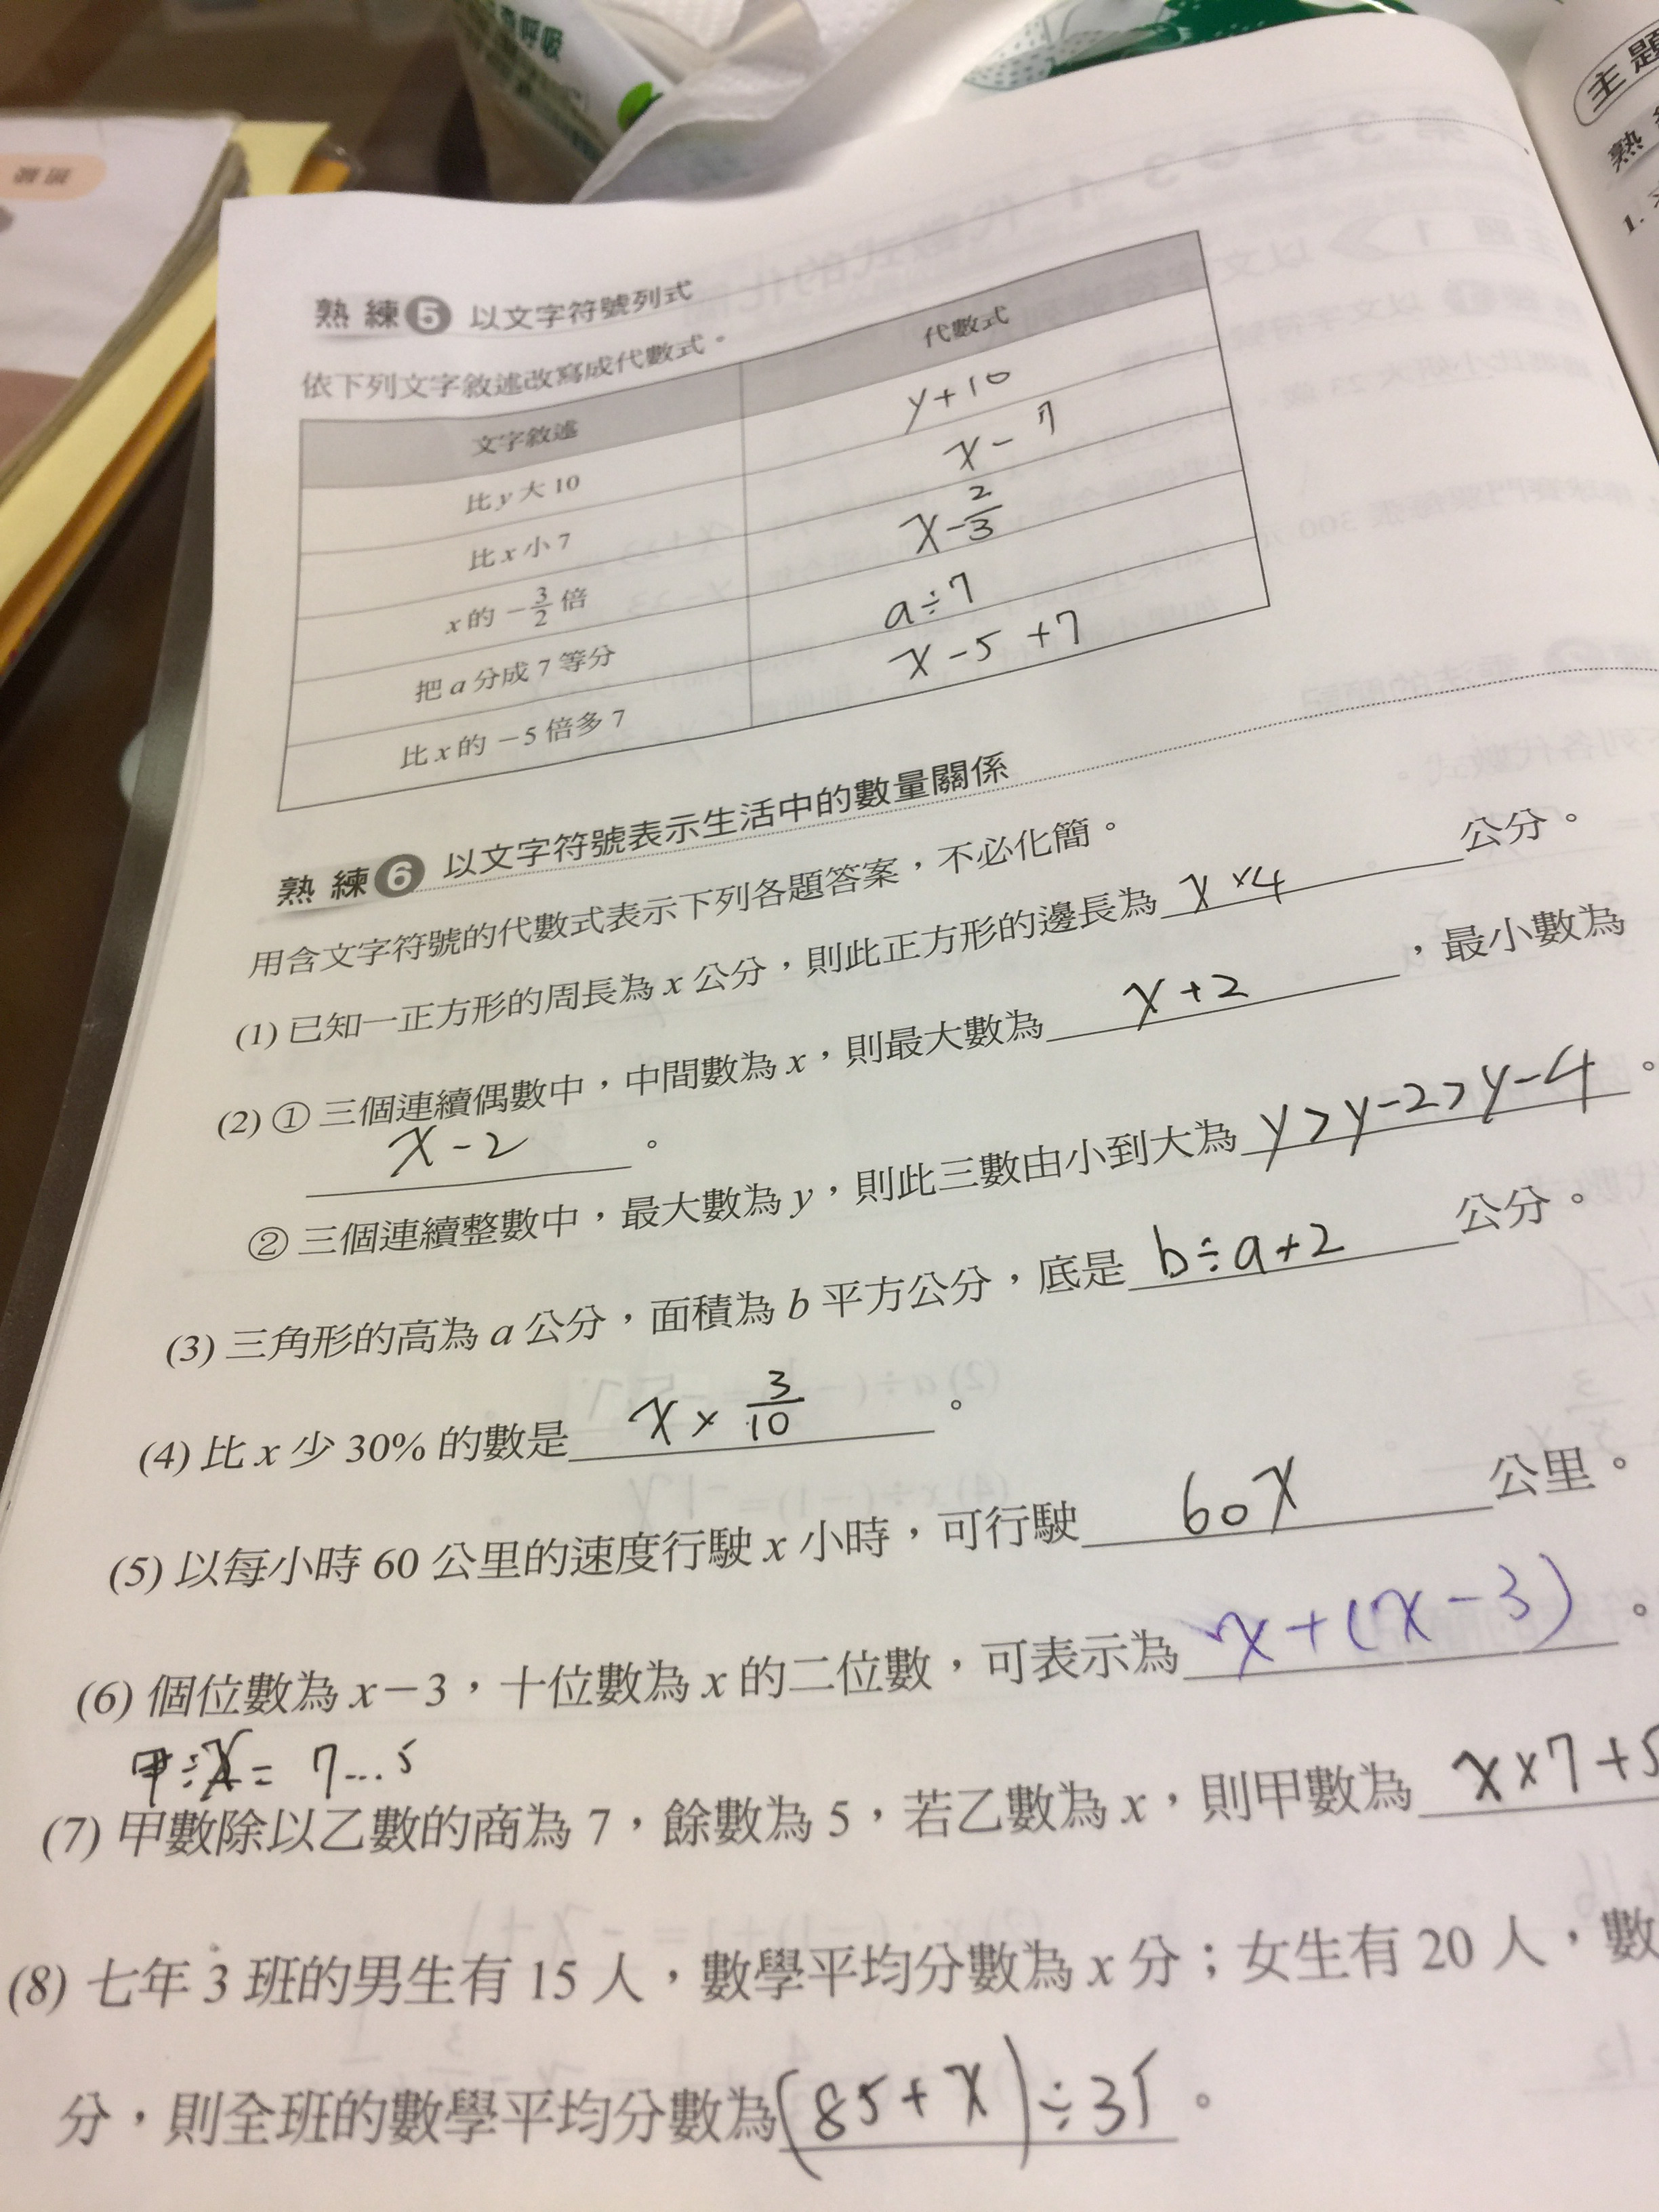 呼吸
主題
熟
1.
熟練5 以文字符號列式
依下列文字敘述改寫成代數式。
文字敘述 代數式
比y大10 y+10
比x小7 x-7
x的-3/2倍 x-2/3
把a分成7等分 a÷7
比x的-5倍多7 x-5+7
熟練6 以文字符號表示生活中的數量關係
用含文字符號的代數式表示下列各題答案,不必化簡。
(1) 已知一正方形的周長為x公分,則此正方形的邊長為 x×4 公分。
(2) ① 三個連續偶數中,中間數為x,則最大數為 x+2 ,最小數為
x-2 。
② 三個連續整數中,最大數為y,則此三數由小到大為 y>y-2>y-4 。
(3) 三角形的高為a公分,面積為b平方公分,底是 b÷a+2 公分。
(4) 比x少30%的數是 x×3/10 。
(5) 以每小時60公里的速度行駛x小時,可行駛 60x 公里。
(6) 個位數為x-3,十位數為x的二位數,可表示為 x+(x-3) 。
甲÷x=7...5
(7) 甲數除以乙數的商為7,餘數為5,若乙數為x,則甲數為 x×7+5
(8) 七年3班的男生有15人,數學平均分數為x分;女生有20人,數
分,則全班的數學平均分數為 (85+x)÷35 。